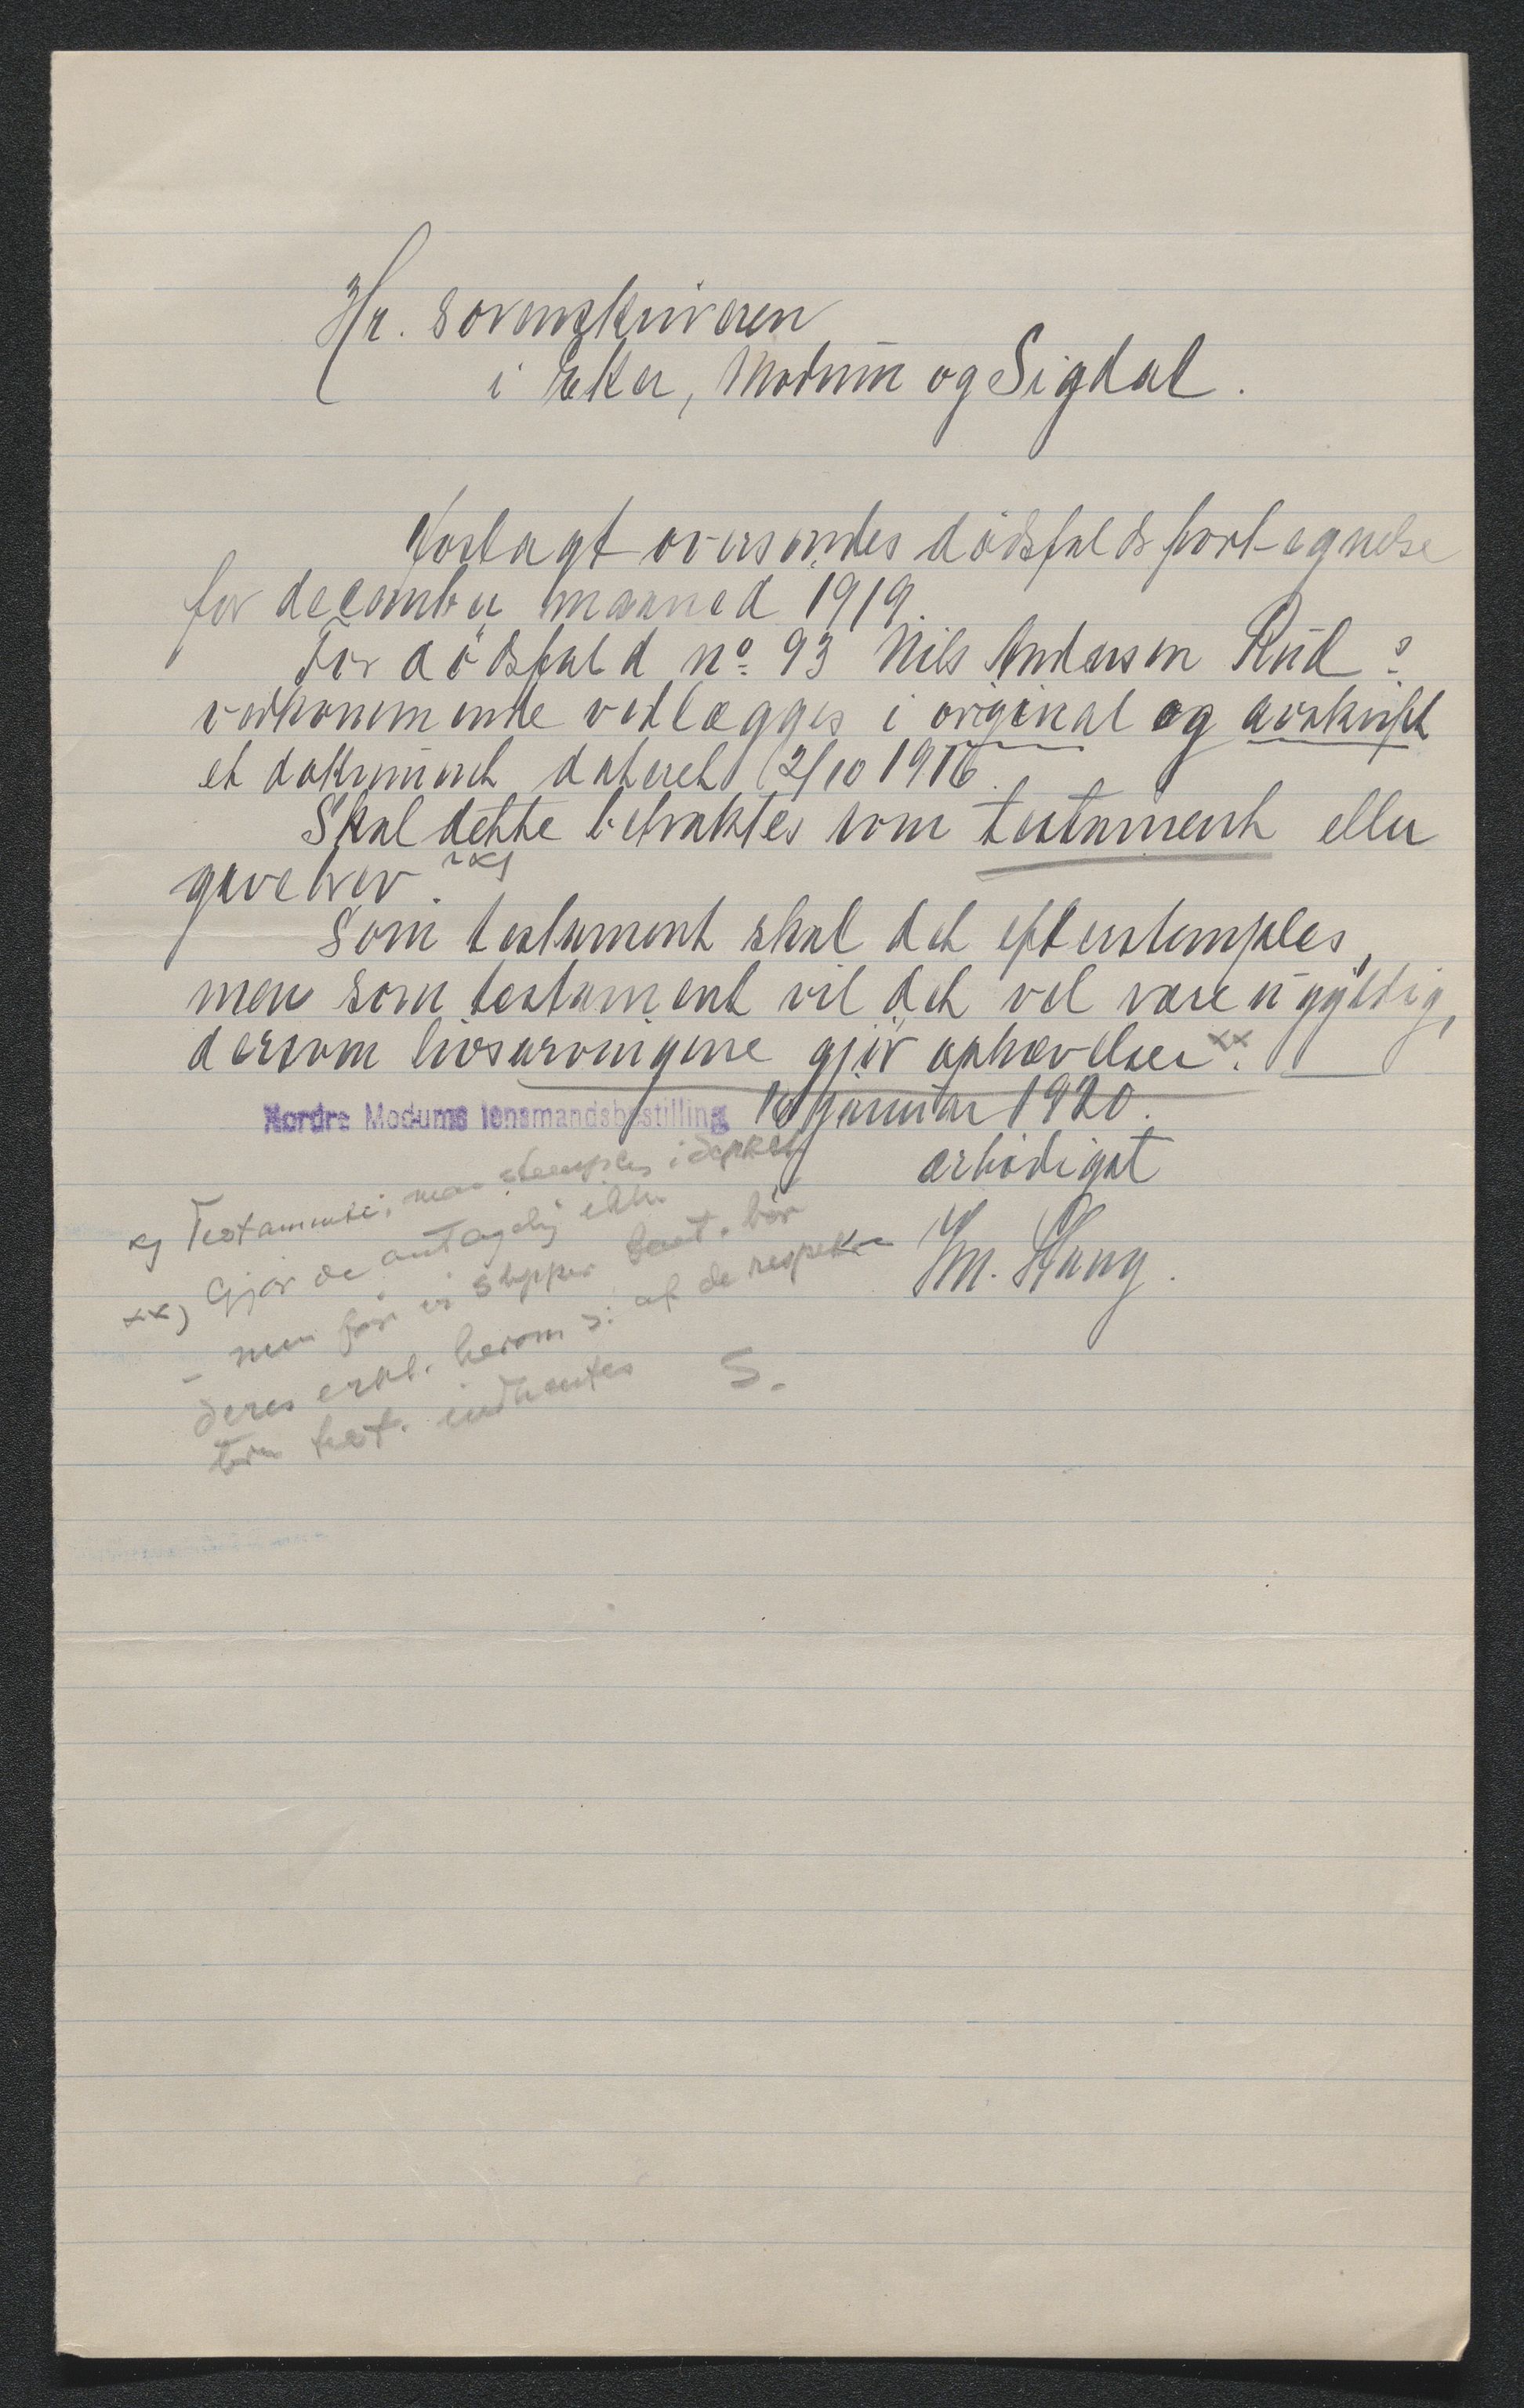 Hr. sorenskriveren
i Eker, Modum og Sigdal.
Vedlagt oversendes dödsfaldsfortegnelse
for december maaned 1919.
For dödsfald no. 93 Nils Andersen Rud s
vedkommende vedlægges i original og avskrift
et dokument dateret 12/10 1916.
Skal dette betraktes som testament eller
gavebrev? x)
Som testament skal det efterstemples,
men som testament vil det vel være ugyldig,
dersom livsarvingene gjör ophævelser xx.
Nordre Modums lensmandsbestilling 16 januar 1920.
ærbödigst
Haug.
x) Testamente; men stemples i
xx) Gjör de antagelig ikke
- men för vi slipper test. bör
deres erkl. herom ɔ: at de respek-
terer test. indhentes S.